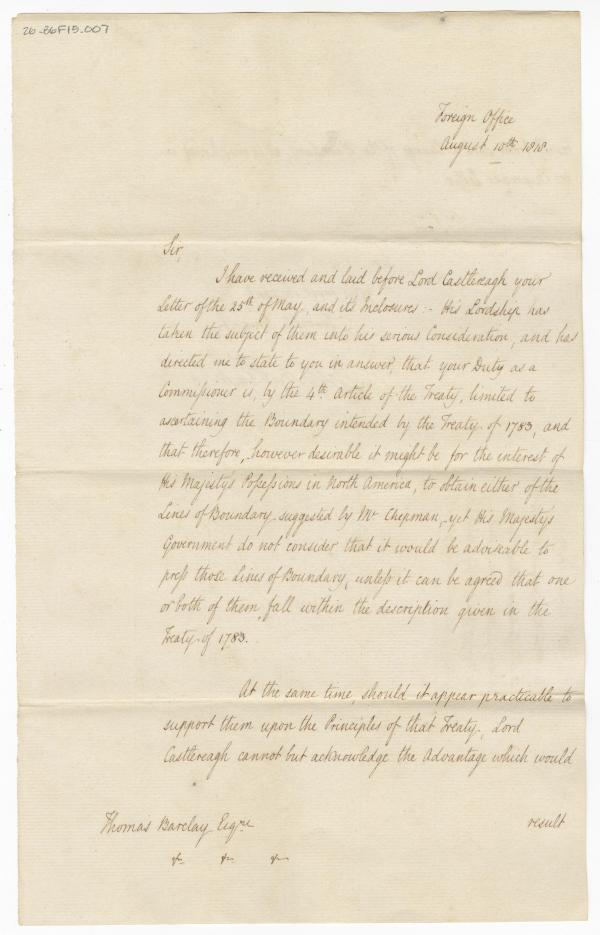 26-86F15-007
Foreign Office
August 10th 1818.
Sir,
I have received and laid before Lord Castlereagh your
Letter of the 25th of May, and its Inclosures:- His Lordship has
taken the subject of them into his serious Consideration, and has
directed me to state to you in answer, that your Duty as a
Commissioner is, by the 4th Article of the Treaty, limited to
ascertaining the Boundary intended by the Treaty of 1783, and
that therefore, however desirable it might be for the interest of
His Majesty's Possessions in North America, to obtain either of the
Lines of Boundary suggested by Mr Chipman, yet His Majesty's
Government do not consider that it would be adviseable to
press those Lines of Boundary, unless it can be agreed that one
or both of them, fall within the description given in the
Treaty of 1783.
At the same time, should it appear practicable to
support them upon the Principles of that Treaty, Lord
Castlereagh cannot but acknowledge the Advantage which would
Thomas Barclay Esqre
result
&c &c &c